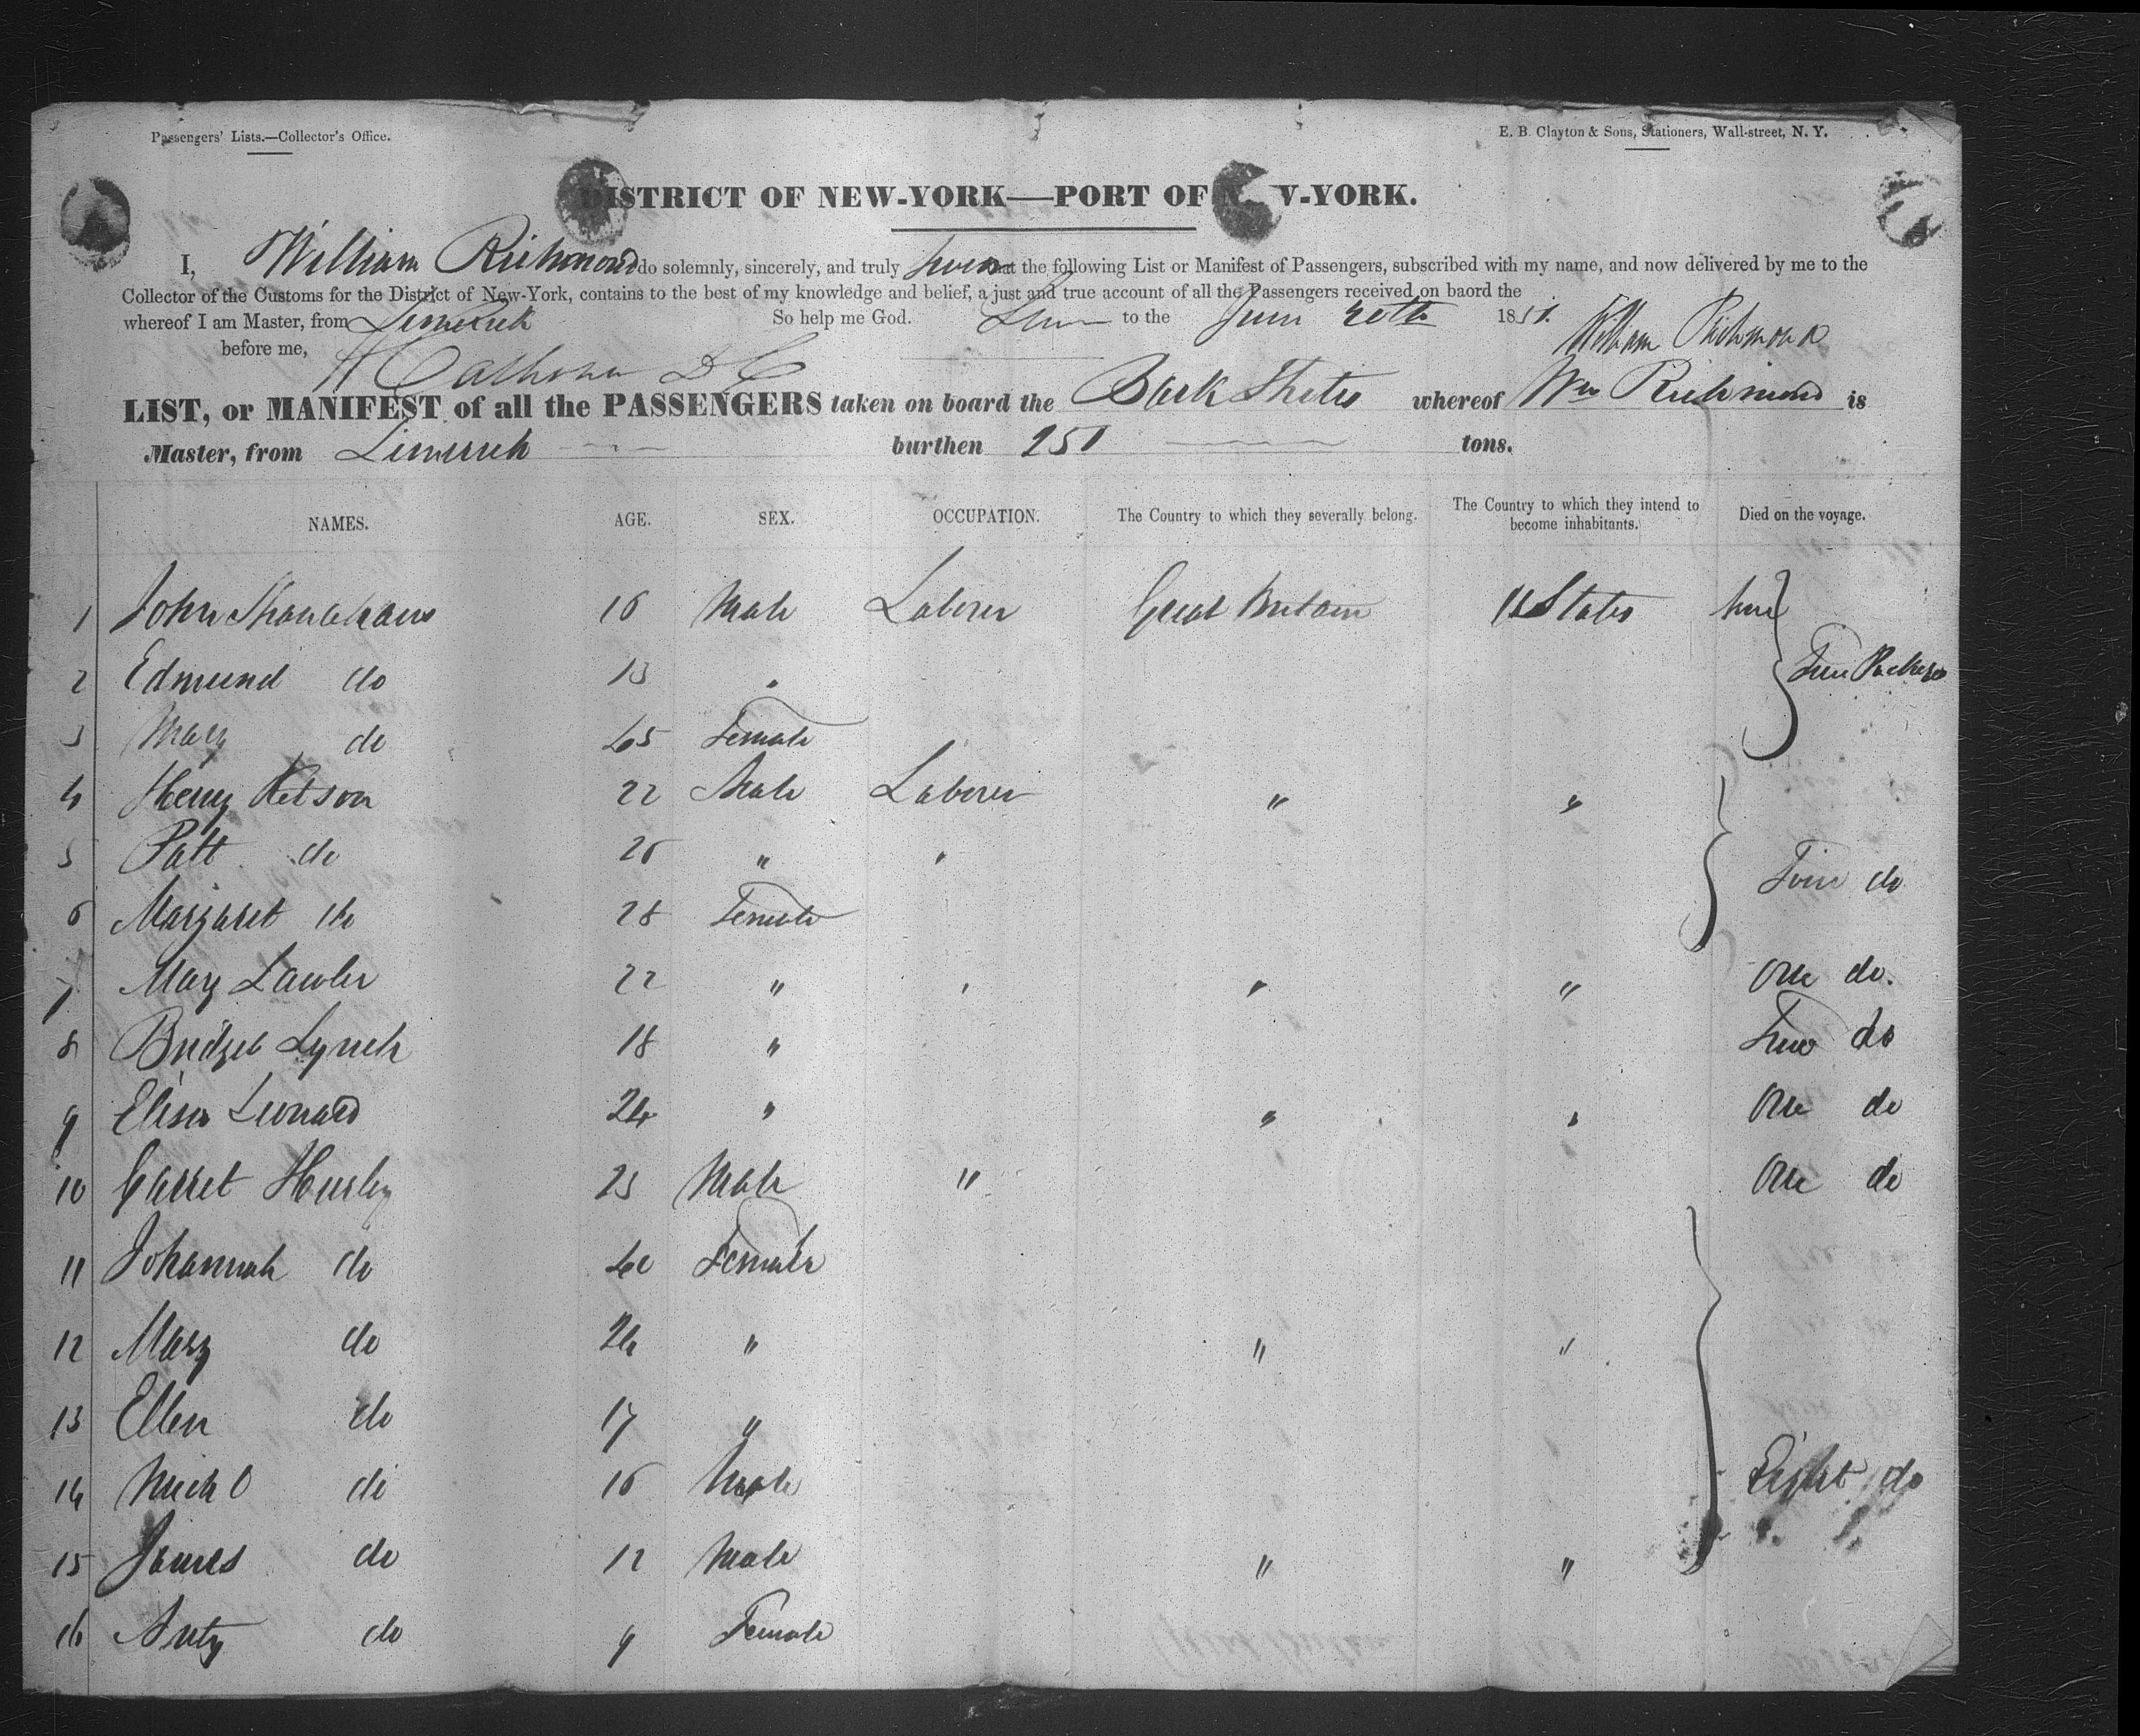 Passengers' Lists.—Collector's Office.
E. B. Clayton & Sons, Stationers, Wall-street, N. Y.
DISTRICT OF NEW-YORK—PORT OF N V-YORK.
I, William Richmond do solemnly, sincerely, and truly swear that the following List or Manifest of Passengers, subscribed with my name, and now delivered by me to the
Collector of the Customs for the District of New-York, contains to the best of my knowledge and belief, a just and true account of all the Passengers received on baord the
whereof I am Master, from Limerick So help me God. to the June 20th 1851.
William Richmond
before me, Calhoun D C
LIST, or MANIFEST of all the PASSENGERS taken on board the Bark whereof Wm Richmond is
Master, from Limerick burthen 251 tons.
NAMES. AGE. SEX. OCCUPATION. The Country to which they severally belong. The Country to which they intend to become inhabitants. Died on the voyage.
1 John 16 Male Laborer Great Britain U States
2 Edmund do 13 "
3 Mary do 45 Female
4 Henry 22 Male Laborer " "
5 Patt do 26 " "
6 Margaret do 28 Female do
7 Mary Lawler 22 " " " " One do.
8 Bridget Lynch 18 " Two do
9 Elisa Leonard 24 " " " One do
10 Garret Hurley 23 Male " One do
11 Johannah do 40 Female
12 Mary do 24 " " "
13 Ellen do 17 "
14 Michl do 16 Male Eight do
15 James do 12 Male " "
16 do 9 Female